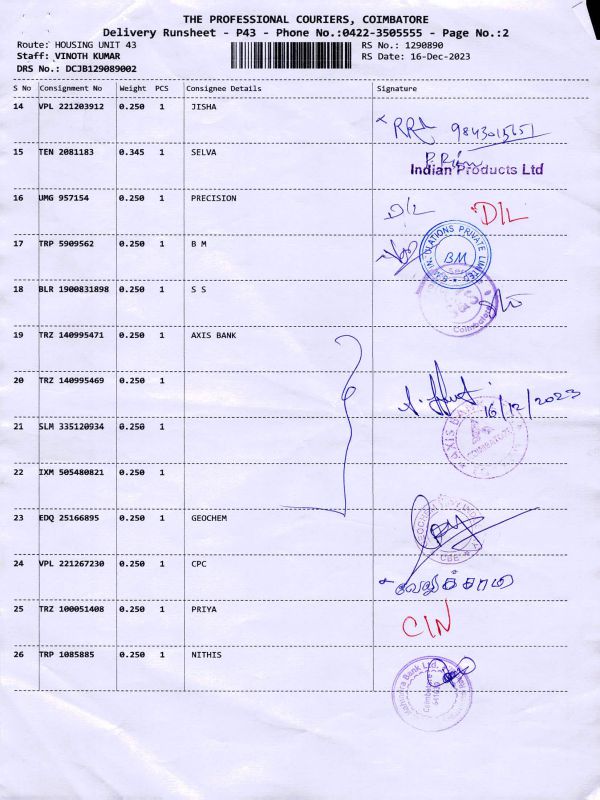 THE PROFESSIONAL COURIERS, COIMBATORE
Delivery Runsheet - P43 - Phone No.:0422-3505555 - Page No.:2
Route: HOUSING UNIT 43 RS No.: 1290890
Staff: VINOTH KUMAR RS Date: 16-Dec-2023
DRS No.: DCJB129089002
S No Consignment No Weight PCS Consignee Details Signature
14 VPL 221203912 0.250 1 JISHA
15 TEN 2081183 0.345 1 SELVA
Indian Products Ltd
16 UMG 957154 0.250 1 PRECISION D/L D/L
17 TRP 5909562 0.250 1 B M BM
18 BLR 1900831898 0.250 1 S S
Coimbatore
19 TRZ 140995471 0.250 1 AXIS BANK
20 TRZ 140995469 0.250 1 16/12/2023
21 SLM 335120934 0.250 1 AXIS BANK
22 IXM 505480821 0.250 1
23 EDQ 25166895 0.250 1 GEOCHEM
CBE
24 VPL 221267230 0.250 1 CPC வேலுச்சாமி
25 TRZ 100051408 0.250 1 PRIYA CIN
26 TRP 1085885 0.250 1 NITHIS
Mahindra Bank Ltd.
Coimbatore